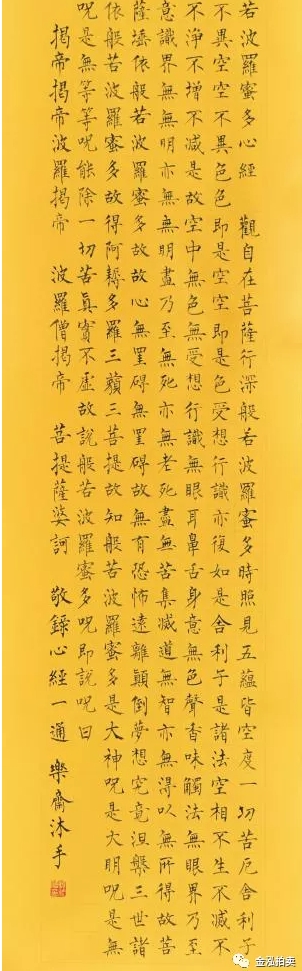 若波羅蜜多心經 觀自在菩薩行深般若波羅蜜多時照見五蘊皆空度一切苦厄舍利子
不異空空不異色色即是空空即是色受想行識亦復如是舍利子是諸法空相不生不滅不
不淨不增不減是故空中無色無受想行識無眼耳鼻舌身意無色聲香味觸法無眼界乃至
意識界無無明亦無無明盡乃至無死亦無老死盡無苦集滅道無智亦無得以無所得故菩
薩埵依般若波羅蜜多故故心無罣礙無罣礙故無有恐怖遠離顛倒夢想究竟涅槃三世諸
依般若波羅蜜多故得阿耨多羅三藐三菩提故知般若波羅蜜多是大神呪是大明呪是無
呪是無等等呪能除一切苦眞實不虛故說般若波羅蜜多呪即說呪曰
揭帝揭帝波羅揭帝 波羅僧揭帝 菩提薩婆訶 敬錄心經一通 樂齋沐手
金泓拍卖